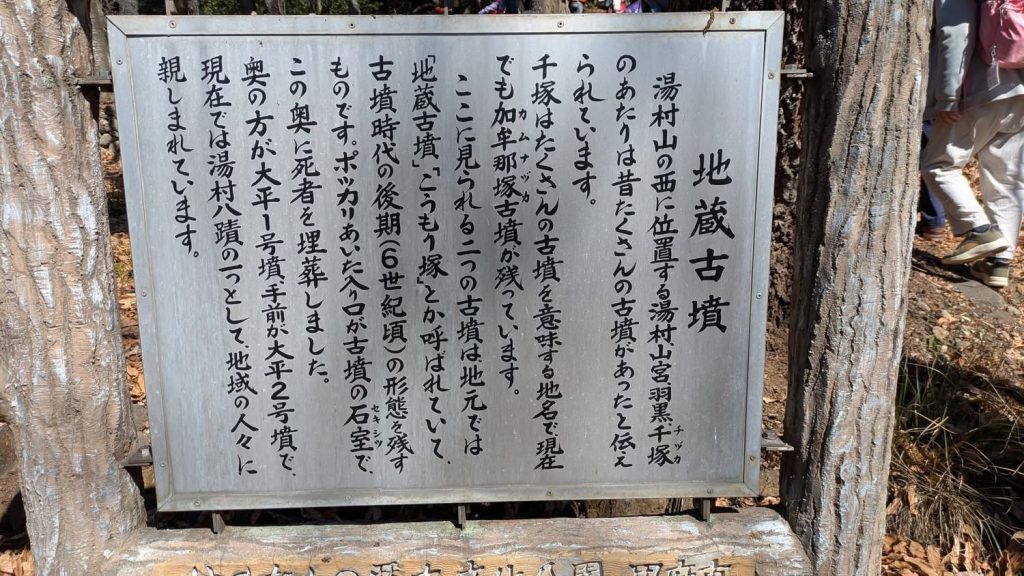 地蔵古墳
湯村山の西に位置する湯村山宮羽黒千塚
チヅカ
のあたりは昔たくさんの古墳があったと伝え
られています。
千塚はたくさんの古墳を意味する地名で現在
でも加牟那塚古墳が残っています。
カムナヅカ
ここに見られる二つの古墳は地元では
「地蔵古墳」「こうもり塚」とか呼ばれていて、
古墳時代の後期(6世紀頃)の形態を残す
ものです。ポッカリあいた入り口が古墳の石室で、
セキシツ
この奥に死者を埋葬しました。
奥の方が大平1号墳、手前が大平2号墳で、
現在では湯村八蹟の一つとして、地域の人々に
親しまれています。